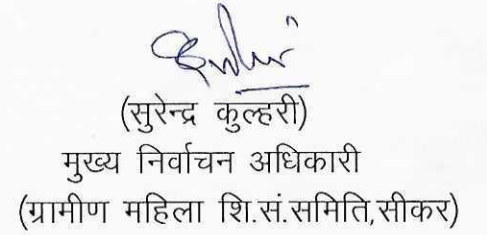 (सुरेन्द्र कुल्हरी)
मुख्य निर्वाचन अधिकारी
(ग्रामीण महिला शि.सं.समिति,सीकर)